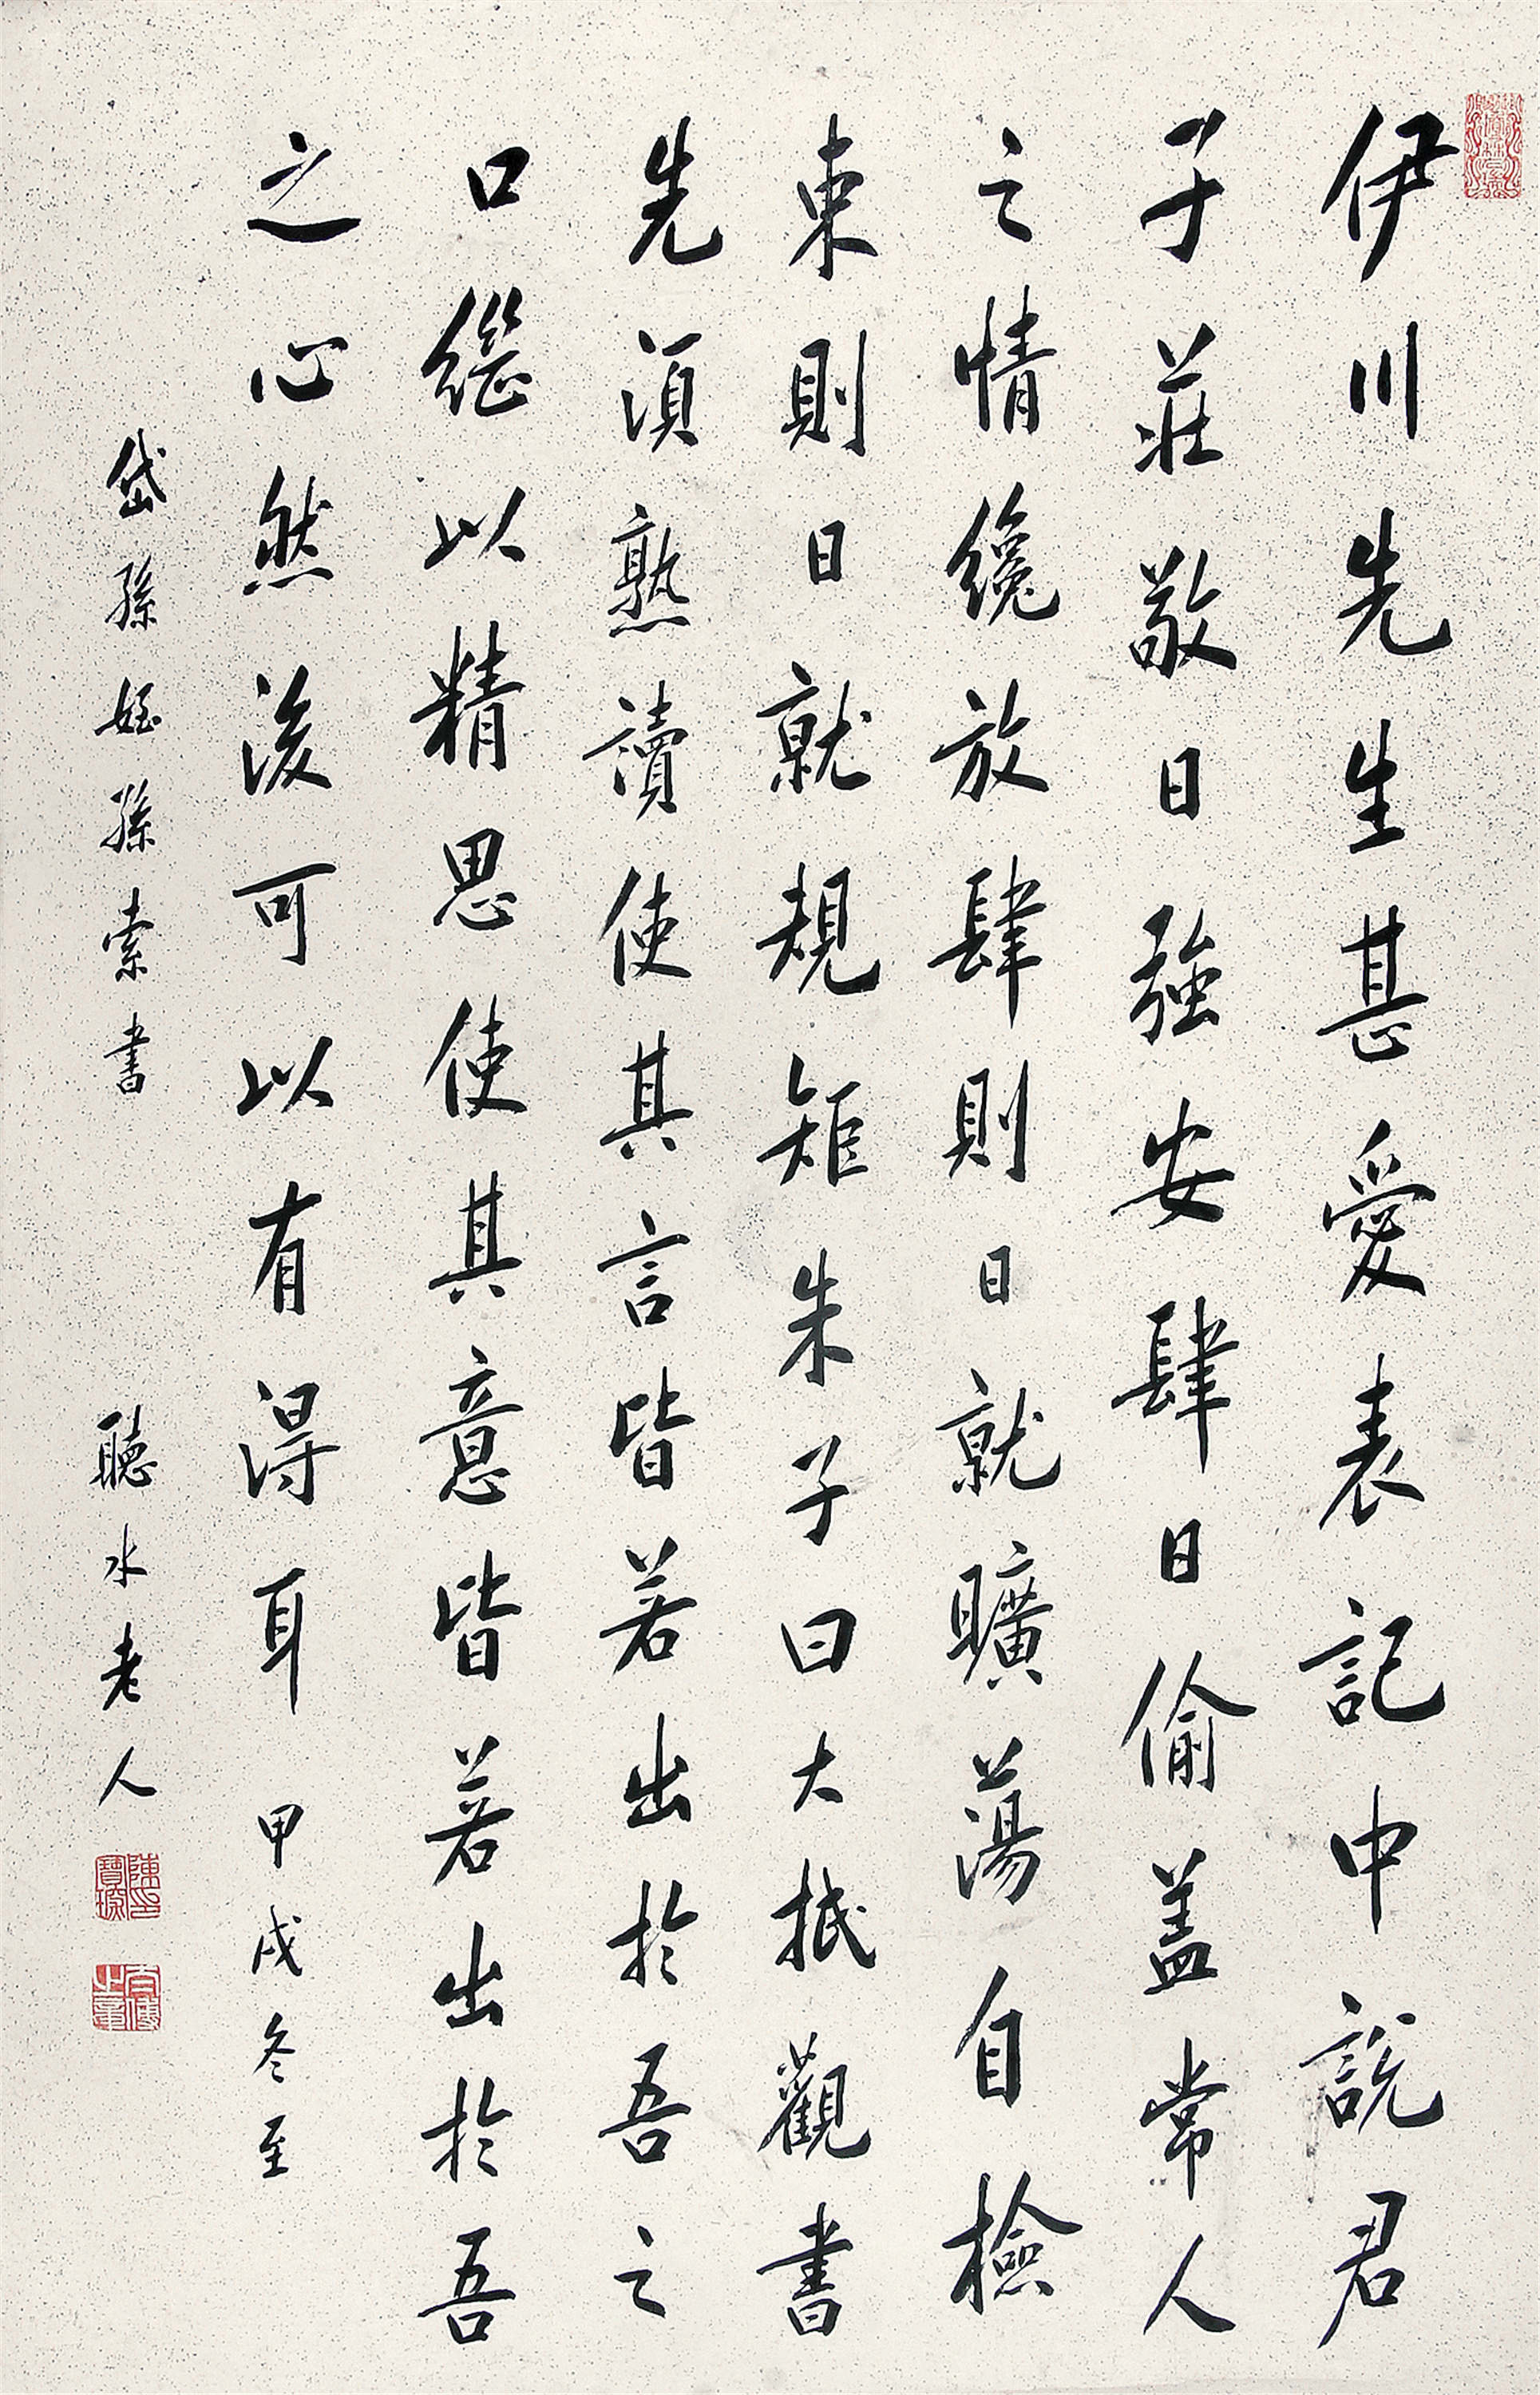 伊川先生甚愛表記中說君
子莊敬日強安肆日偷盖常人
之情纔放肆則日就曠蕩自檢
束則日就規矩朱子曰大抵觀書
先須熟讀使其言皆若出於吾之
口繼以精思使其意皆若出於吾
之心然後可以有得耳 甲戌冬至
岱孫姪孫索書 聽水老人
陳寶琛印
太傅之章